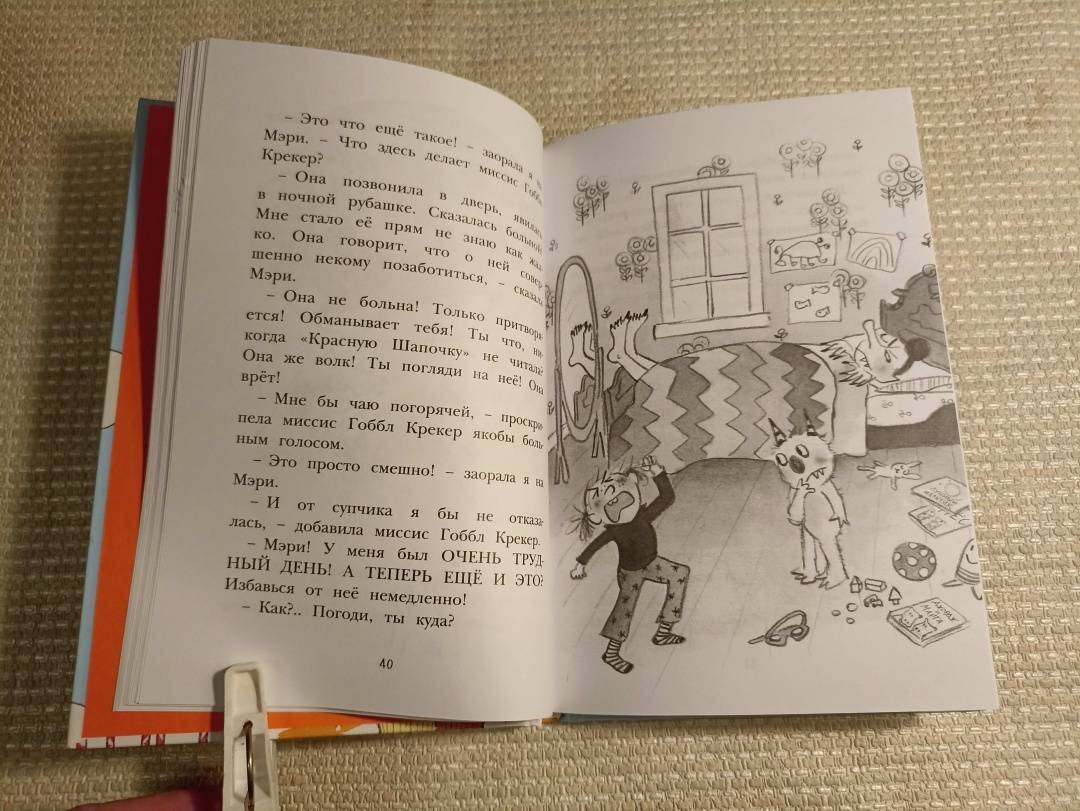 – Это что ещё такое! – заорала я на
Мэри. – Что здесь делает миссис Гоббл
Крекер?
– Она позвонила в дверь, явилась
в ночной рубашке. Сказалась больной.
Мне стало её прям не знаю как жал
ко. Она говорит, что о ней совер
шенно некому позаботиться, – сказала
Мэри.
– Она не больна! Только притворя
ется! Обманывает тебя! Ты что, ни
когда «Красную Шапочку» не читала?
Она же волк! Ты погляди на неё! Она
врёт!
– Мне бы чаю погорячей, – проскри
пела миссис Гоббл Крекер якобы боль
ным голосом.
– Это просто смешно! – заорала я на
Мэри.
– И от супчика я бы не отказа-
лась, – добавила миссис Гоббл Крекер.
– Мэри! У меня был ОЧЕНЬ ТРУД-
НЫЙ ДЕНЬ! А ТЕПЕРЬ ЕЩЁ И ЭТО?
Избавься от неё немедленно!
– Как?.. Погоди, ты куда?
40